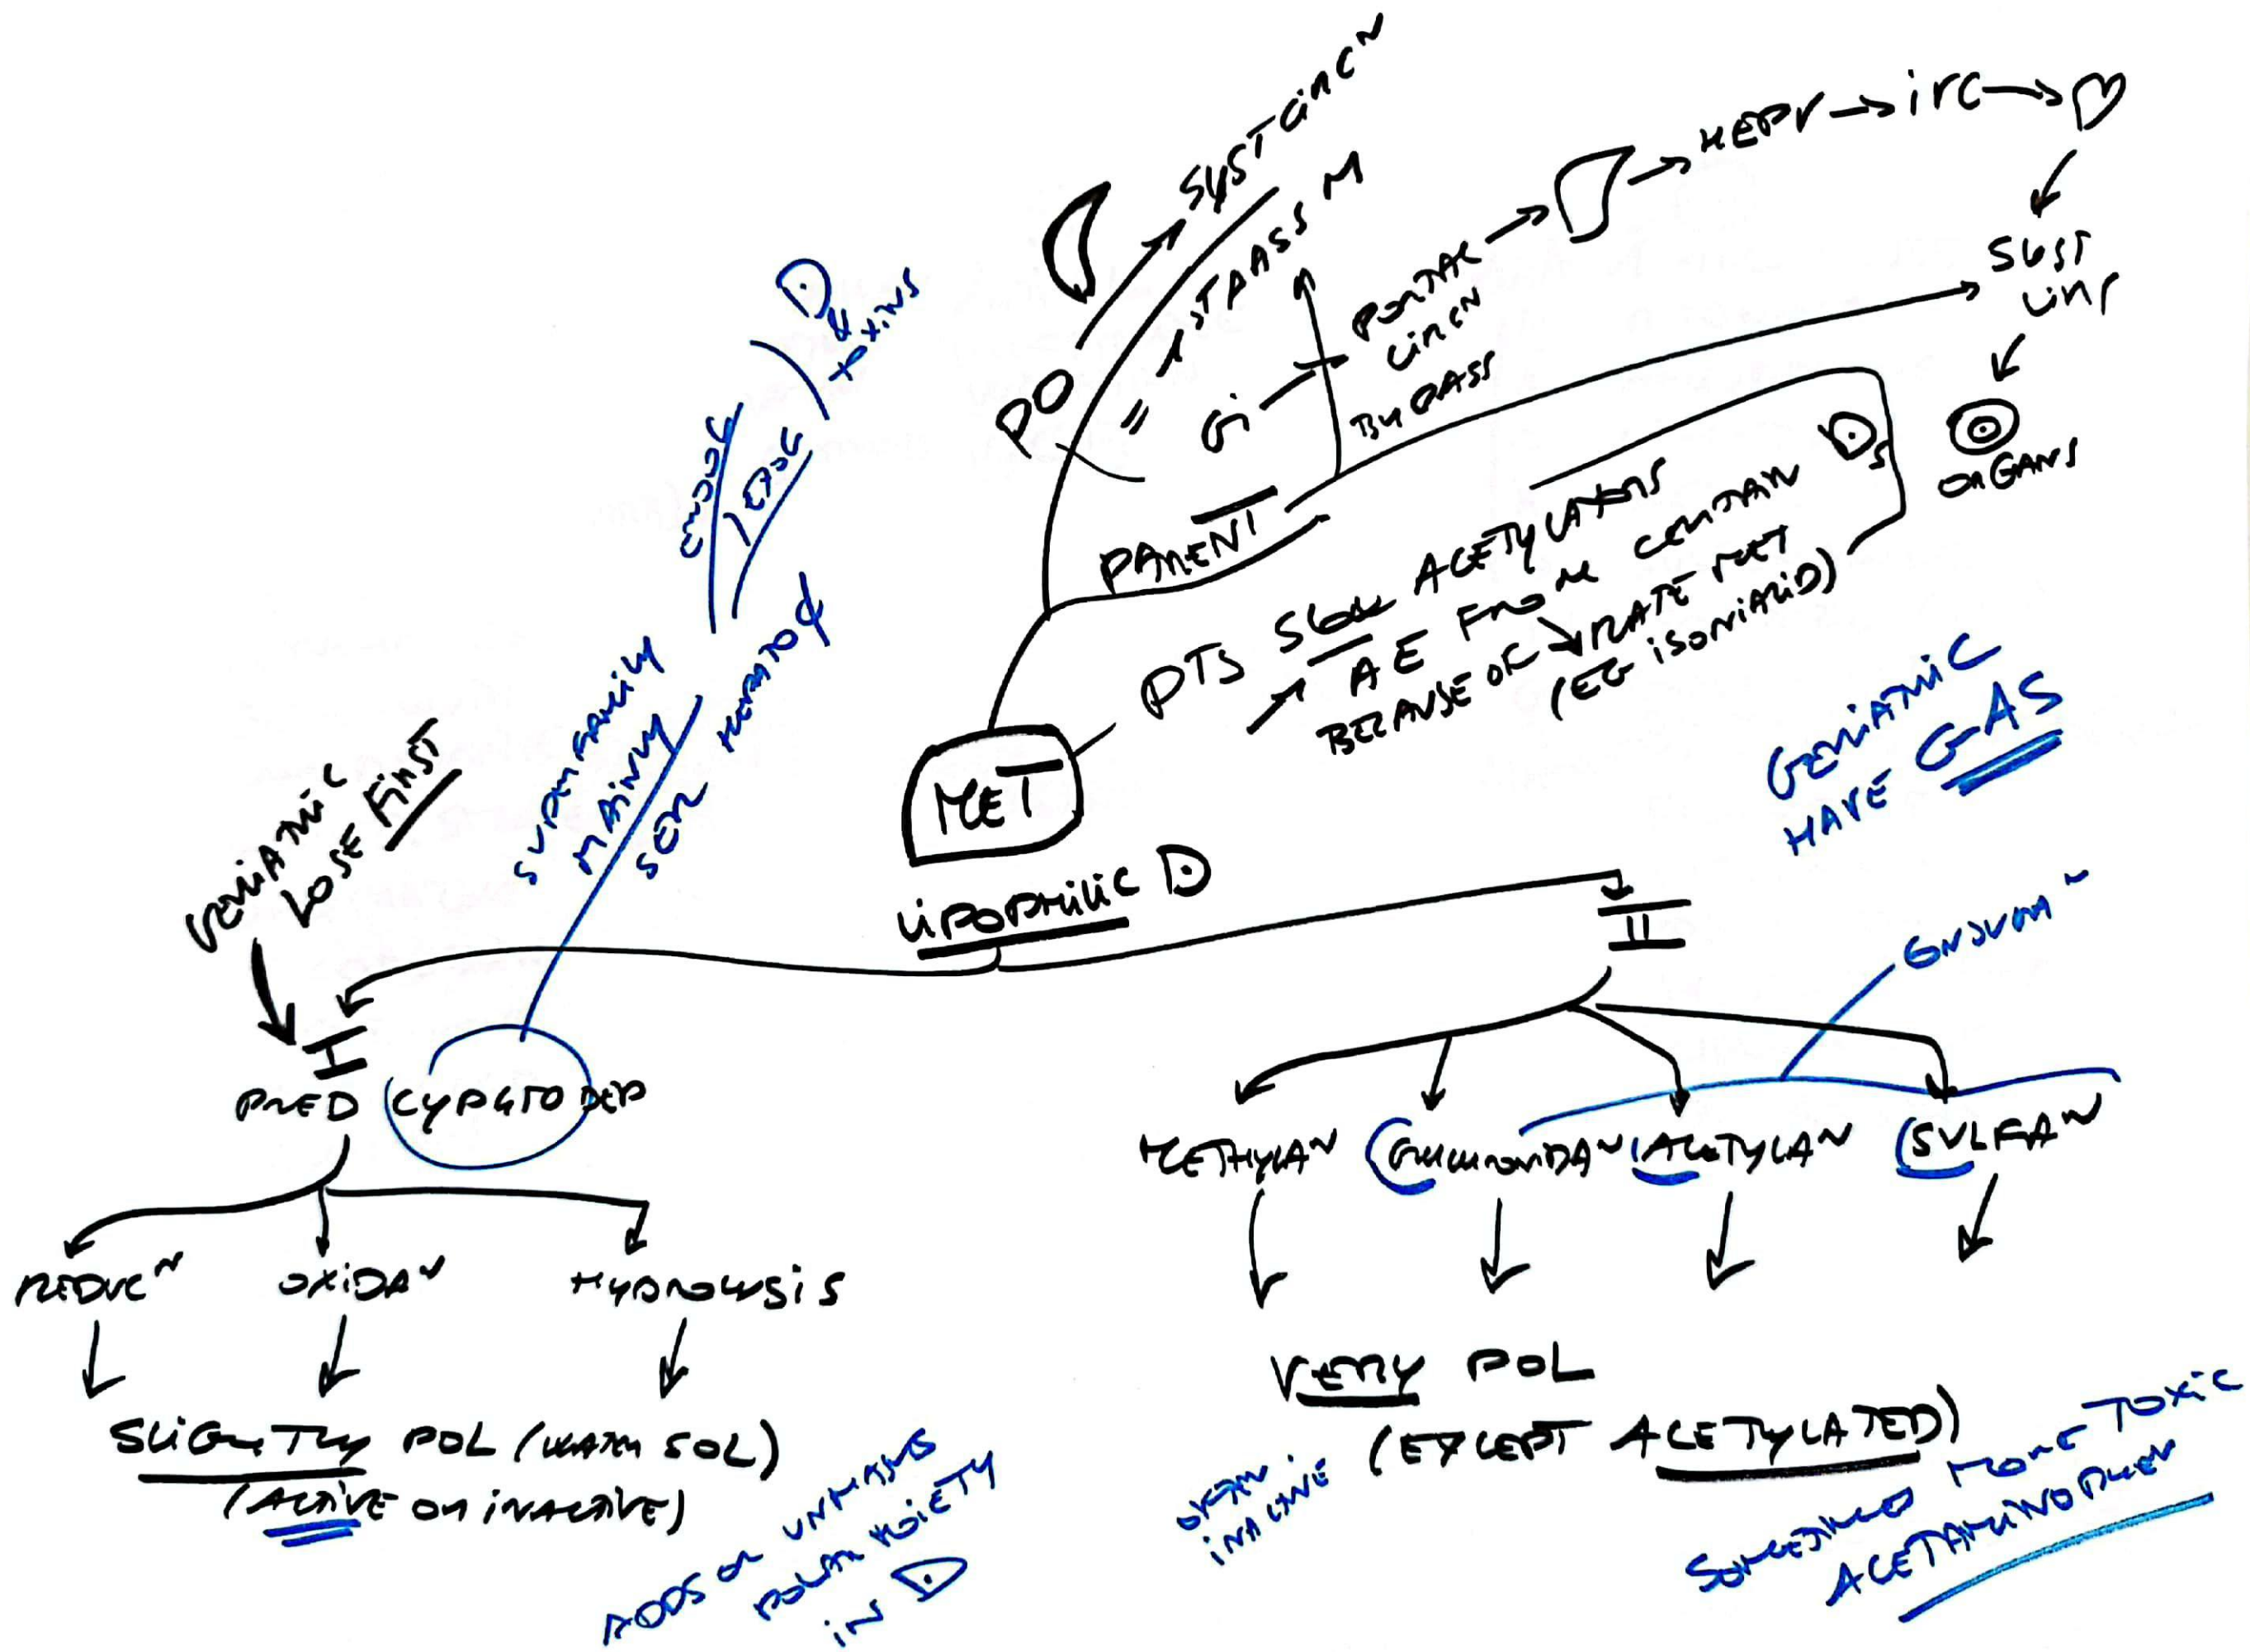 SYST CIRC^N
1ST PASS M
=
PO
GI
PORTAL
CIRC^N
HEPV → IVC →
SYST
CIRC
ORGANS
BYPASS
PARENT
PTS SLOW ACETYLATORS
↗ AE FROM CERTAIN DS
BECAUSE OF ↘ RATE MET
(EG ISONIAZID)
MET
LIPOPHILIC D
D &
TOXINS
ENDOG
EXOG
SUPERFAMILY
MAINLY
SER HEPATOC
GERIATRIC
LOSE FIRST
I
RED (CYP450 DEP
REDUC^N
OXIDA^N
HYDROLYSIS
SLIGHTLY POL (WATER SOL)
(ACTIVE OR INACTIVE)
ADDS OR UNMASKS
POLAR MOIETY
IN D
GERIATRIC
HAVE GAS
II
METHYLA^N
GLUCURONIDA^N
ACETYLA^N
SULFA^N
VERY POL
(EXCEPT ACETYLATED)
OFTEN
INACTIVE
SOMETIMES MORE TOXIC
ACETAMINOPHEN